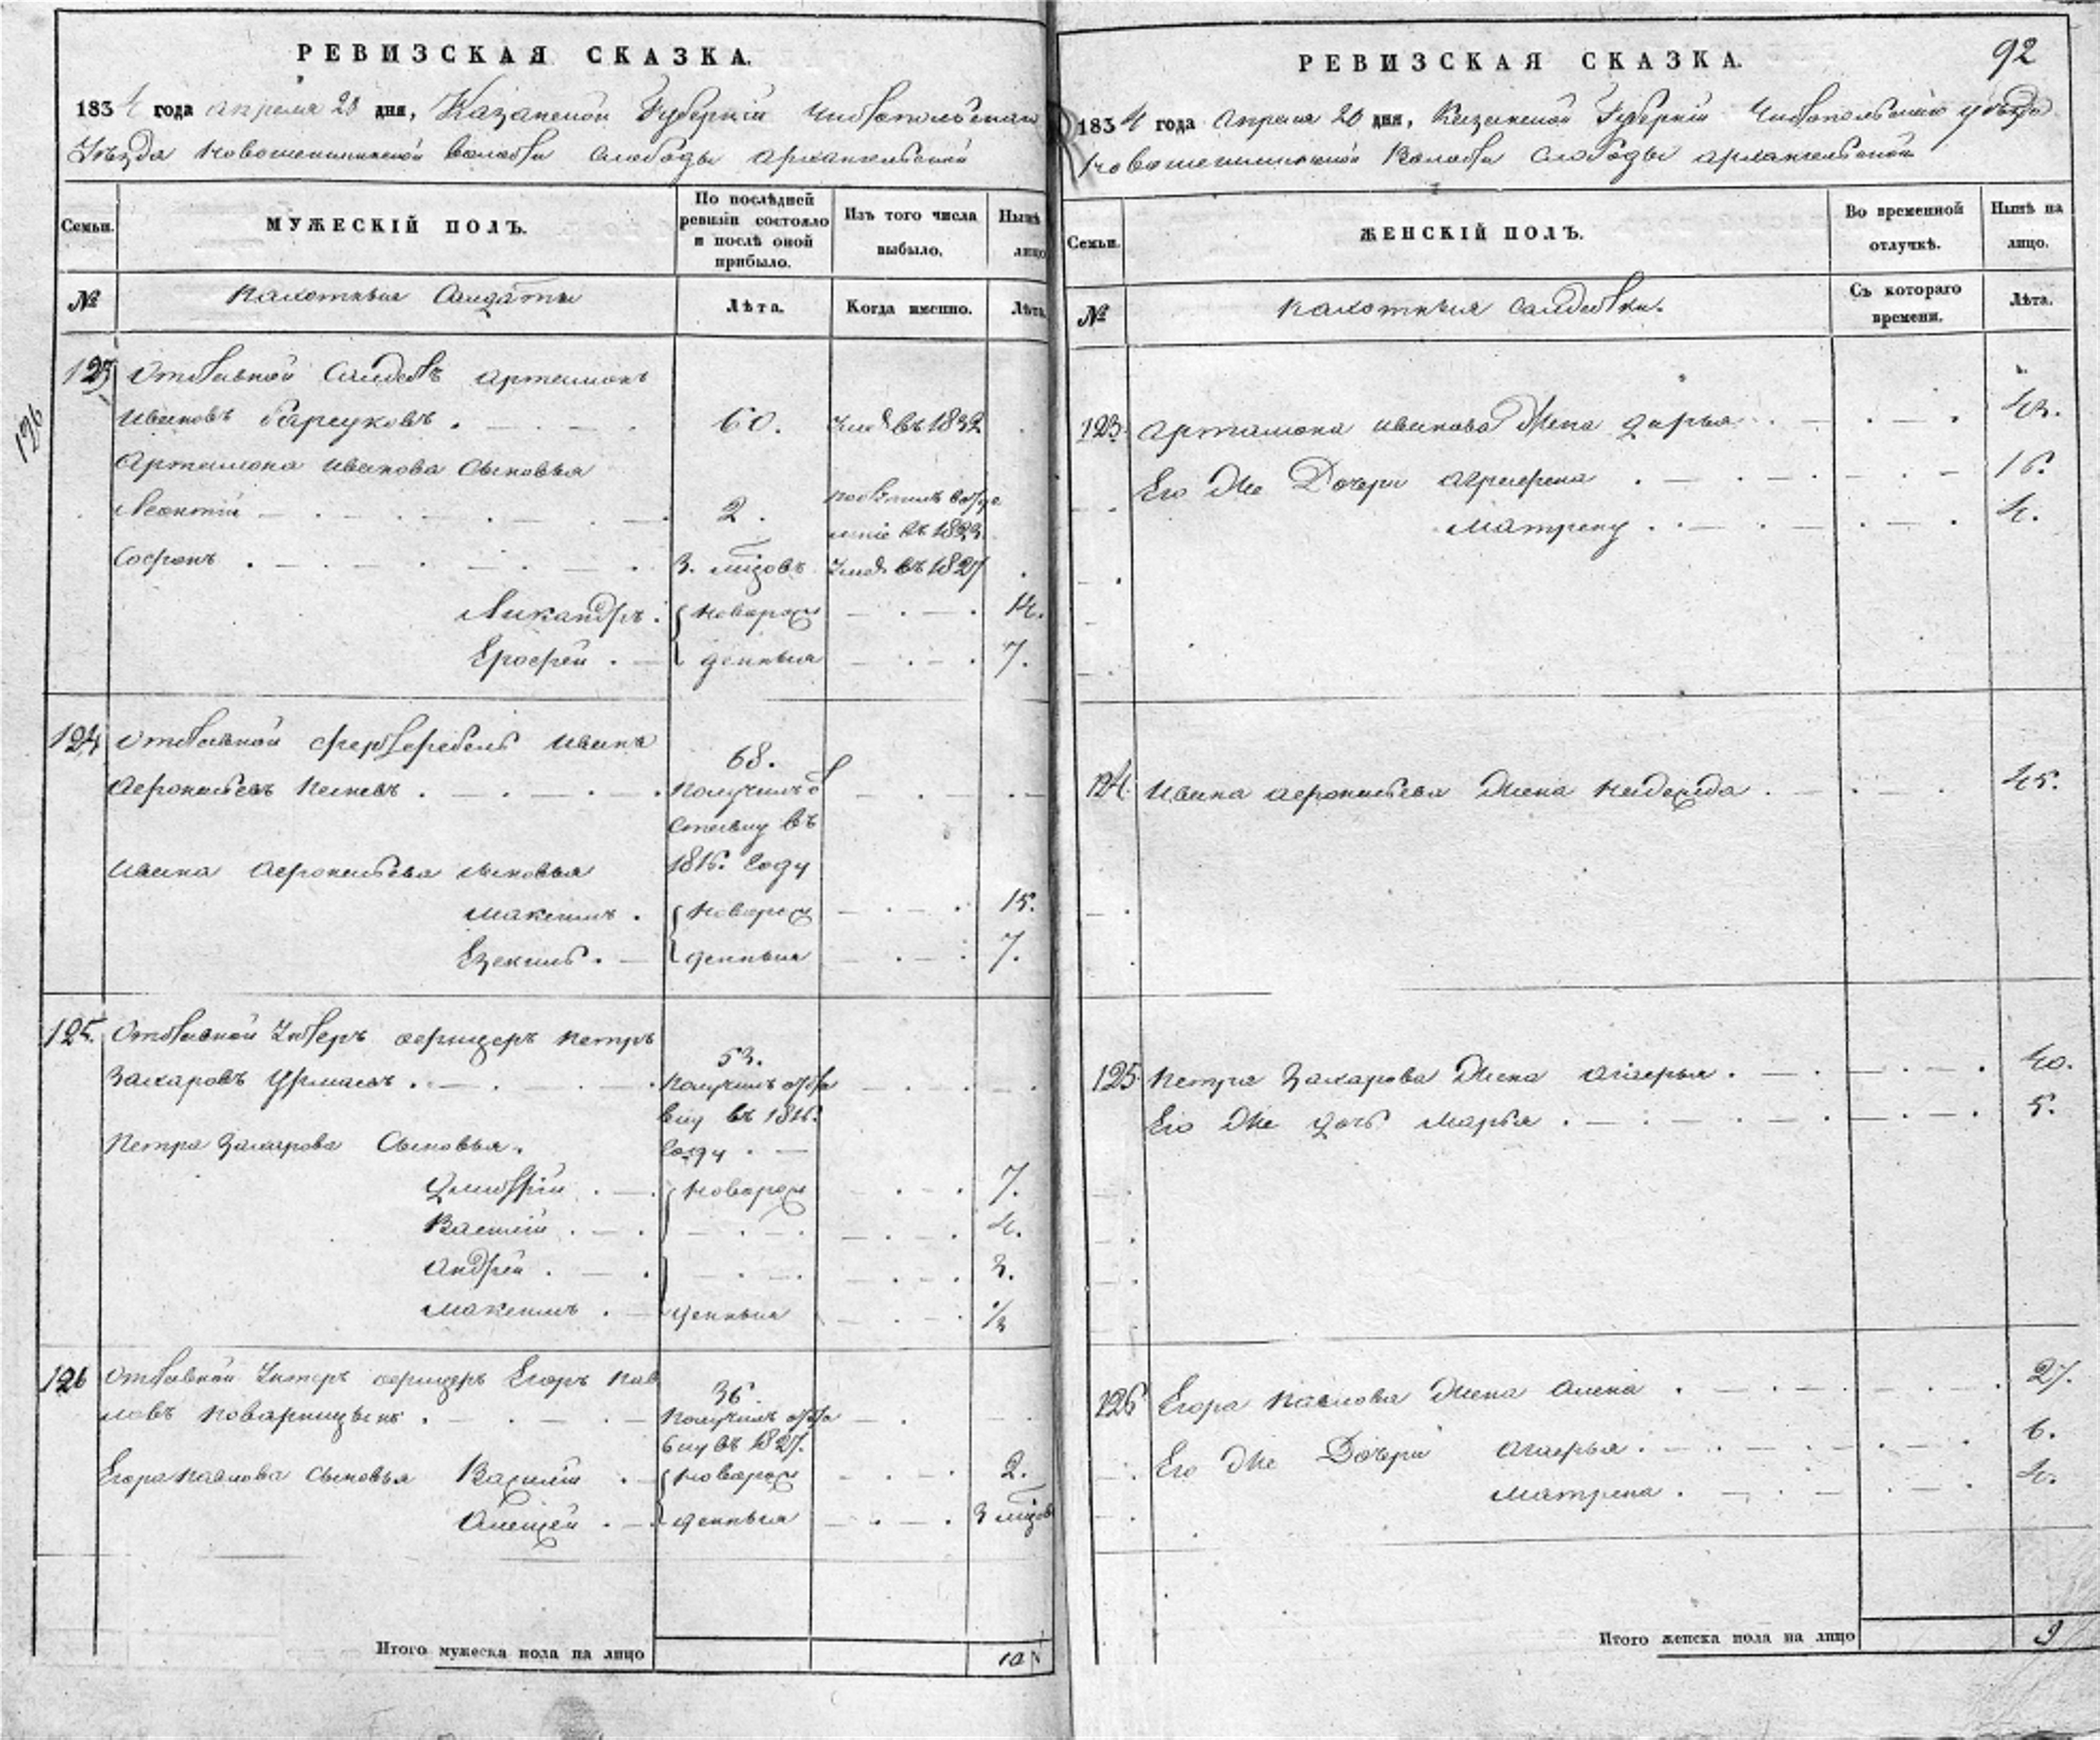 РЕВИЗСКАЯ СКАЗКА.
1834 года апреля 20 дня, Казанской Губернiи Чистопольскаго
Уѣзда Новошешминской Волости Слободы Архангельской
Семьи.
МУЖЕСКIЙ ПОЛЪ.
По послѣдней ревизiи состояло и послѣ оной прибыло.
Изъ того числа выбыло.
Нынѣ лицо
№
Пахотныя Салдаты
Лѣта.
Когда именно.
Лѣта.
126
123 Отставной Салдатъ Артамонъ
Ивановъ Барсуковъ . 60. Умеръ въ 1832
Артамона Иванова Сыновья
Леонтiй 2.
въ 1823
Софронъ 3. мѣсяцовъ Умеръ въ 1827
Никандръ. новорож 14.
Ерофей . денныя 7.
124 Отставной Иванъ 68.
Афонасьевъ . Получилъ
въ
Ивана Афонасьева сыновья 1816. году
Максимъ . новорож 15.
Езекиль . денныя 7.
125. Отставной Унтеръ офицеръ Петръ 53.
Захаровъ . Получилъ отста
вку въ 1816.
Петра Захарова Сыновья. году
Дмитрiй новорож 7.
Василiй . 4.
Андрей . 3.
Максимъ . денныя
126 Отставной Унтеръ офицеръ Егоръ Пав 36.
ловъ Поварницынъ . Получилъ отста
вку въ 1827.
Егора Павлова сыновья Василiй новорож 2.
Алексей . денныя 3 мѣсяц
Итого мужеска пола на лицо 10
92
РЕВИЗСКАЯ СКАЗКА.
1834 года Апреля 20 дня, Казанской Губернiи Чистопольскаго уѣзда
Новошешминской Волости Слободы Архангельской
Семьи.
ЖЕНСКIЙ ПОЛЪ.
Во временной отлучкѣ.
Нынѣ на лицо.
№
Пахотныя Салдатки.
Съ котораго времени.
Лѣта.
123. Артамона Иванова Жена Дарья 43.
Его Же Дочери Агрефена 16.
Матрену 4.
124. Ивана Афонасьева Жена Надежда . 45.
125 Петра Захарова Жена Агафья . 40.
Его Же дочь Марья . 5.
126 Егора Павлова Жена Алена . 27.
Его Же Дочери Агафья . 6.
Матрена . 4.
Итого женска пола на лицо 9